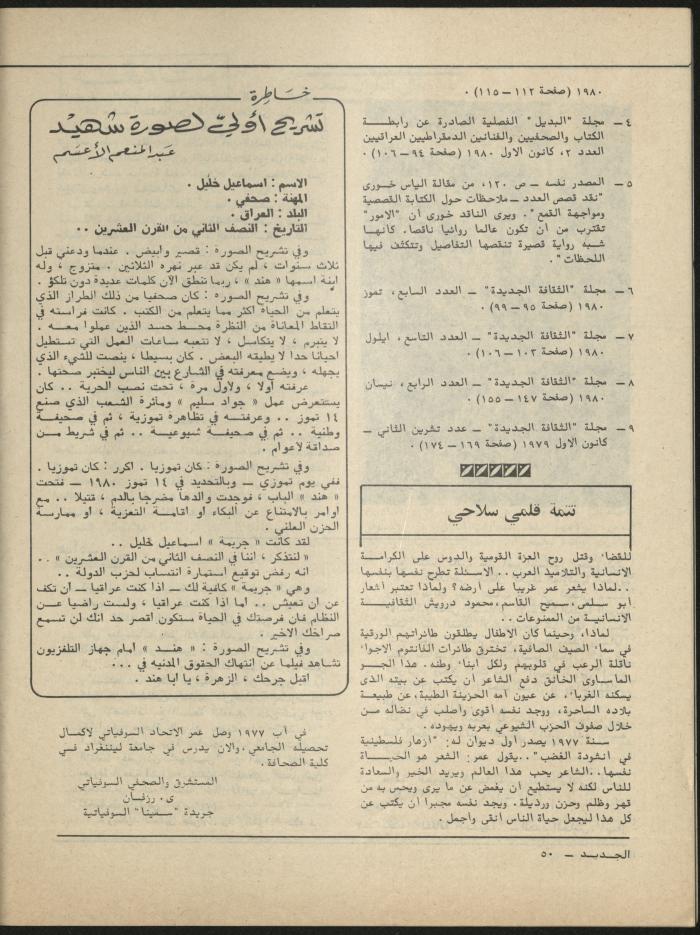 ١٩٨٠ (صفحة ١١٢ – ١١٥) .
٤ – مجلة "البديل" الفصلية الصادرة عن رابطة
الكتاب والصحفيين والفنانين الدمقراطيين العراقيين
العدد ٢، كانون الاول ١٩٨٠ (صفحة ٩٤ – ١٠٦) .
٥ – المصدر نفسه – ص ١٢٠، من مقالة الياس خوري
"نقد قصص العدد – ملاحظات حول الكتابة القصصية
ومواجهة القمع". ويرى الناقد خوري أن "الامور"
تقترب من أن تكون عالما روائيا ناقصا، كأنها
شبه رواية قصيرة تنقصها التفاصيل وتتكثف فيها
اللحظات".
٦ – مجلة "الثقافة الجديدة" – العدد السابع، تموز
١٩٨٠ (صفحة ٩٥ – ٩٩) .
٧ – مجلة "الثقافة الجديدة" – العدد التاسع، ايلول
١٩٨٠ (صفحة ١٠٣ – ١٠٦) .
٨ – مجلة "الثقافة الجديدة" – العدد الرابع، نيسان
١٩٨٠ (صفحة ١٤٧ – ١٥٥) .
٩ – مجلة "الثقافة الجديدة" – عدد تشرين الثاني –
كانون الاول ١٩٧٩ (صفحة ١٦٩ – ١٧٤) .
تتمة قلمي سلاحي
للقضاء وقتل روح العزة القومية والدوس على الكرامة
الانسانية والتلاميذ العرب .. الاسئلة تطرح نفسها بنفسها
..لماذا يشعر عمر غريبا على أرضه؟ ولماذا تعتبر أشعار
أبو سلمى،سميح القاسم،محمود درويش الثقافية
الانسانية من الممنوعات ..
لماذا، وحينما كان الاطفال يطلقون طائراتهم الورقية
في سماء الصيف الصافية، تخترق طائرات الفانتوم الاجواء
ناقلة الرعب في قلوبهم ولكل ابناء وطنه. هذا الجو
المأساوي الخانق دفع الشاعر أن يكتب عن بيته الذي
يسكنه الغرباء، عن عيون أمه الحزينة الطيبة،عن طبيعة
بلاده الساحرة، ووجد نفسه أقوى وأصلب في نضاله من
خلال صفوف الحزب الشيوعي بعربه ويهوده .
سنة ١٩٧٧ يصدر أول ديوان له: "أزهار فلسطينية
في أنشودة الغضب"..يقول عمر: الشعر هو الحياة
نفسها..الشاعر يحب هذا العالم ويريد الخير والسعادة
للناس لكنه لا يستطيع أن يغمض عن ما يرى ويحس به من
قهر وظلم وحزن ورذيلة. ويجد نفسه مجبرا أن يكتب عن
كل هذا ليجعل حياة الناس أنقى وأجمل .
خاطرة
تشريح أولي لصورة شهيد
عبد المنعم الأعسم
الاسم : اسماعيل خليل .
المهنة : صحفي .
البلد : العراق .
التاريخ : النصف الثاني من القرن العشرين ..
وفي تشريح الصورة : قصير وأبيض . عندما ودعني قبل
ثلاث سنوات ، لم يكن قد عبر نهره الثلاثين . متزوج ، وله
ابنة اسمها « هند » ، ربما تنطق الآن كلمات عديدة دون تلكؤ .
وفي تشريح الصورة : كان صحفيا من ذلك الطراز الذي
يتعلم من الحياة أكثر مما يتعلم من الكتب . كانت فراسته في
التقاط المعاناة من النظرة محط حسد الذين عملوا معه .
لا يتبرم ، لا يتكاسل ، لا تتعبه ساعات العمل التي تستطيل
احيانا حدا لا يطيقه البعض . كان بسيطا ، ينصت للشيء الذي
يجهله ، ويضع معرفته في الشارع بين الناس ليختبر صحتها .
عرفته أولا ، ولأول مرة ، تحت نصب الحرية .. كان
يستعرض عمل « جواد سليم » ومأثرة الشعب الذي صنع
١٤ تموز .. وعرفته في تظاهرة تموزية ، ثم في صحيفة
وطنية .. ثم في صحيفة شيوعية .. ثم في شريط من
صداقة لأعوام .
وفي تشريح الصورة : كان تموزيا . اكرر : كان تموزيا .
ففي يوم تموزي – وبالتحديد في ١٤ تموز ١٩٨٠ – فتحت
« هند » الباب ، فوجدت والدها مضرجا بالدم ، قتيلا .. مع
أوامر بالامتناع عن البكاء أو اقامة التعزية ، أو ممارسة
الحزن العلني .
لقد كانت « جريمة » اسماعيل خليل ..
« لنتذكر ، اننا في النصف الثاني من القرن العشرين » ..
انه رفض توقيع استمارة انتساب لحزب الدولة ..
وهي « جريمة » كافية لك – اذا كنت عراقيا – أن تكف
عن ان تعيش .. اما اذا كنت عراقيا ، ولست راضيا عن
النظام فان فرصتك في الحياة ستكون أقصر حد انك لن تسمع
صراخك الاخير .
وفي تشريح الصورة : « هند » امام جهاز التلفزيون
تشاهد فيلما عن انتهاك الحقوق المدنيه في ...
اقبل جرحك ، الزهرة ، يا ابا هند .
في آب ١٩٧٧ وصل عمر الاتحاد السوفياتي لاكمال
تحصيله الجامعي،والان يدرس في جامعة ليننغراد في
كلية الصحافة .
المستشرق والصحفي السوفياتي
ي. رزفان
جريدة "سمينا" السوفياتية
الجديد – ٥٠